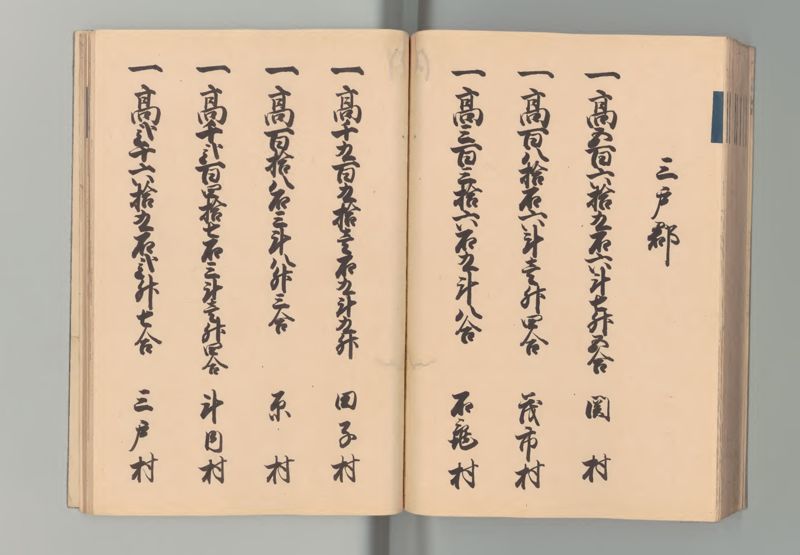 三戸郡
一高五百六拾五石六斗七升五合 関村
一高百八拾石六斗壱升四合 茂市村
一高三百三拾六石九斗八合 石亀村
一高千五百九拾壱石九斗九升 田子村
一高百拾八石三斗八升三合 原村
一高千弐百四拾七石三斗壱升四合 斗内村
一高弐千六拾九石弐升七合 三戸村